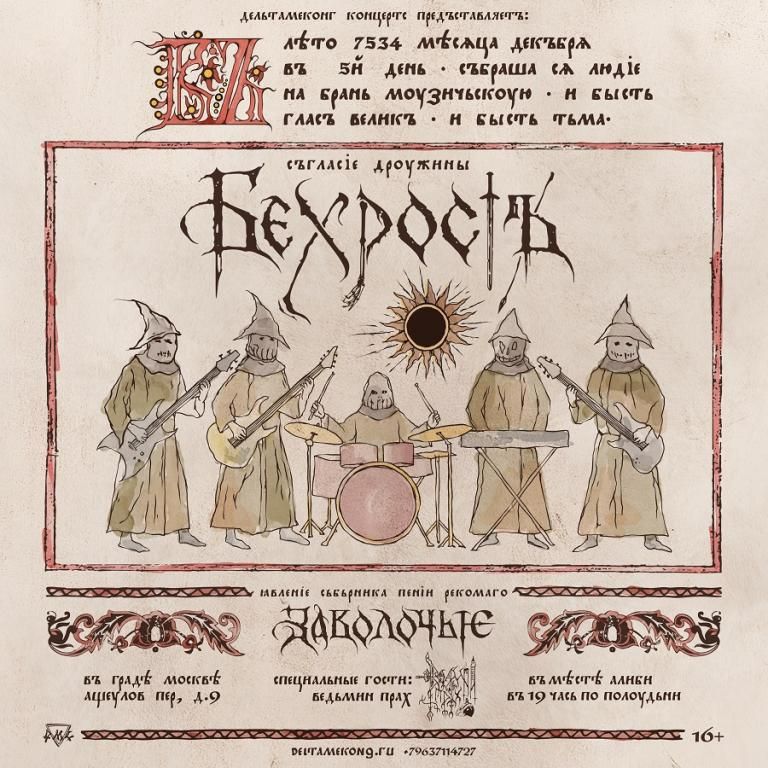 дельтамеконг концертс предъставляетъ:
Въ лѣто 7534 мѣсяца декъбря
въ 5й день · събраша ся людіе
на брань моузичьскоую · и бысть
гласъ великъ · и бысть тьма·
съгласіе дроужины
Бехрость
ıавленіе събьрника пеніи рекомаго
Заволочье
въ градѣ москвѣ
ащеулов пер, д.9
специальные гости:
ведьмин прах
въ мѣстѣ алиби
въ 19 часъ по полоудьни
16+
deltamekong.ru +79637114727